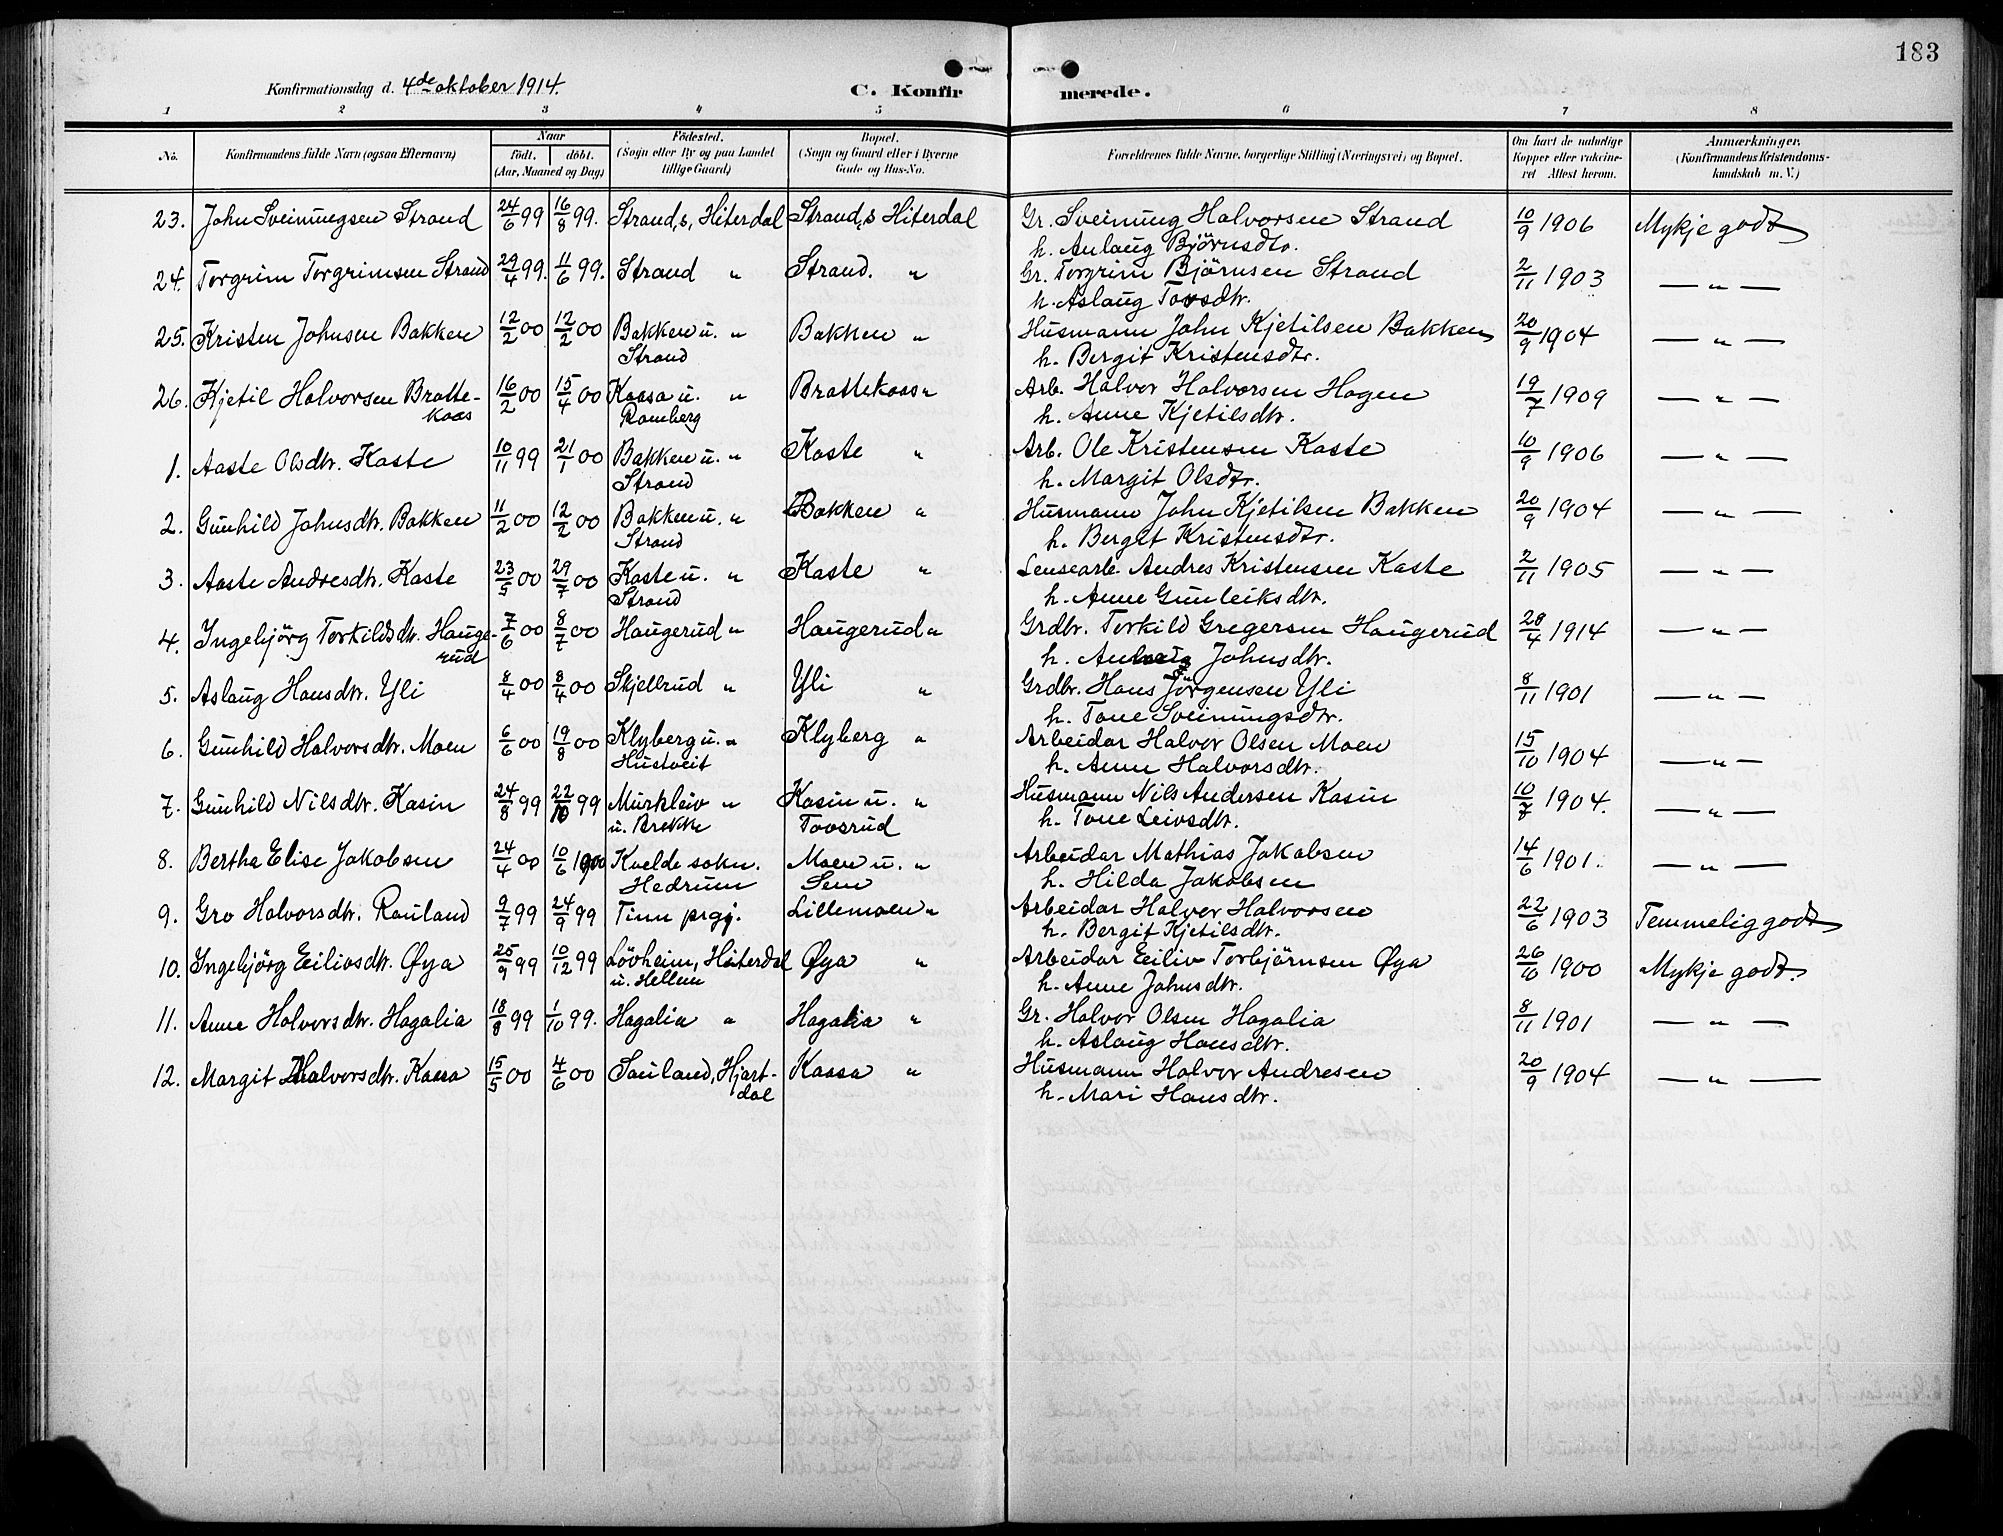 183
Konfirmationsdag d. 4de oktober 1914.
C. Konfirmerede.
1 2 3 4 5 6 7 8
No. Konfirmandens fulde Navn (ogsaa Efternavn) Naar födt. döbt. (Aar, Maaned og Dag) Födested. (Sogn eller By og paa Landet tillige Gaard) Bopæl. (Sogn og Gaard eller i Byerne Gade og Hus-No. Forældrenes fulde Navne, borgerlige Stilling (Næringsvei) og Bopæl. Om havt de naturlige Kopper eller vaccineret Attest herom. Anmærkninger. (Konfirmandens Kristendomskundskab m. V.)
23. John Sveinungsen Strand 24/6 99 16/8 99. Strand, s, Hiterdal Strand, s Hiterdal Gr. Sveinung Halvorsen Strand 10/9 1906 Mykje godt
h. Anlaug Björnsdtr.
24. Torgrim Torgrimsen Strand 29/4 99. 11/6 99. Strand " Strand. " Gr. Torgrim Björnsen Strand 2/11 1903 — " —
h. Aslaug Tovsdtr.
25. Kristen Johnsen Bakken 12/2 00 12/2 00 Bakken u. " Bakken " Husmann John Kjetilsen Bakken 20/9 1904 — " —
Strand h. Bergit Kristensdtr.
26. Kjetil Halvorsen Bratte- 16/2 00 15/4 00 Kaasa u. " Brattekaas " Arb. Halvor Halvorsen Hagen 19/7 1909 — " —
kaas Ramberg h. Anne Kjetilsdtr.
1. Aaste Olsdtr. Kaste 10/11 99 21/1 00 Bakken u. " Kaste " Arb. Ole Kristensen Kaste 10/9 1906 — " —
Strand h. Margit Olsdtr.
2. Gunhild Johnsdtr. Bakken 11/2 00 12/2 00 Bakken u. " Bakken " Husmann John Kjetilsen Bakken 20/9 1904 — " —
Strand h. Bergit Kristensdtr.
3. Aaste Andresdtr. Kaste 23/5 00 29/7 00 Kaste u. " Kaste " Lensearb. Andres Kristensen Kaste 2/11 1905 — " —
Strand h. Anne Gunleiksdtr.
4. Ingebjörg Torkildsdtr. Hauge- 7/6 00 8/7 00 Haugerud " Haugerud " Grdbr. Torkild Gregersen Haugerud 28/4 1914 — " —
rud h. Johnsdtr.
5. Aslaug Hansdtr. Yli 8/4 00 8/4 00 Skjellrud " Yli " Grdbr. Hans Jörgensen Yli 8/11 1901 — " —
h. Tone Sveinungsdtr.
6. Gunhild Halvorsdtr. Moen 6/6 00 19/8 00 Klyberg u. " Klyberg " Arbeidar Halvor Olsen Moen 15/10 1904 — " —
Hustveit h. Anne Halvorsdtr.
7. Gunhild Nilsdtr. Kasin 24/8 99 22/10 99 Murkleiv " Kasin u. " Husmann Nils Andersen Kasin 10/7 1904. — " —
u. Brekke Tovsrud h. Tone Leivsdtr.
8. Bertha Elise Jakobsen 24/4 00 10/6 1900 Kvelde sokn. Moen u. " Arbeidar Mathias Jakobsen 14/6 1901. — " —
Hedrum Sem h. Hilda Jakobsen
9. Gro Halvorsdtr. Rauland 9/7 99 24/9 99 Tinn prgj. Lillemoen " Arbeidar Halvor Halvorsen 22/6 1903 Temmelig godt
h. Bergit Kjetilsdtr.
10. Ingebjörg Eilivsdtr. Øya 25/9 99 10/12 99 Lövheim, Hiterdal Øya " Arbeidar Eiliv Torbjörnsen Øya 26/10 1900 Mykje godt.
u. Hellem h. Anne Johnsdtr.
11. Anne Halvorsdtr. Hagalia 18/8 99 1/10 99. Hagalia " Hagalia " Gr. Halvor Olsen Hagalia 8/11 1901 — " —
h. Aslaug Hansdtr.
12. Margit Halvorsdtr. Kaasa 15/5 00 4/6 00 Sauland, Hjart- Kaasa " Husmann Halvor Andresen 20/9 1904 — " —
dal h. Mari Hansdtr.